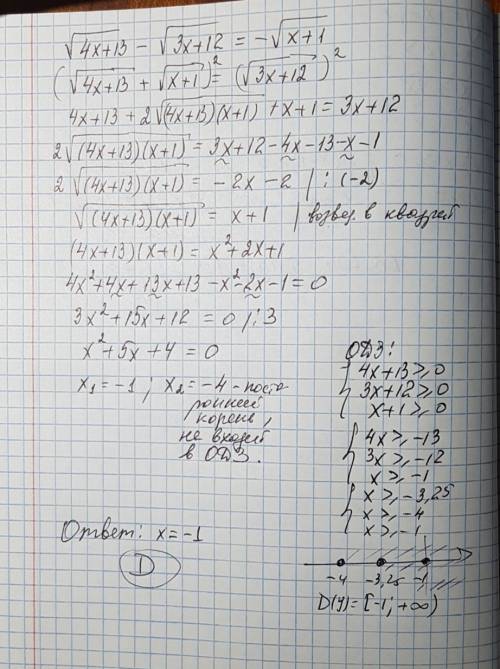 √(4x+13) − √(3x+12) = −√(x+1)
(√(4x+13) + √(x+1))² = (√(3x+12))²
4x+13 + 2√((4x+13)(x+1)) + x+1 = 3x+12
2√((4x+13)(x+1)) = 3x+12−4x−13−x−1
2√((4x+13)(x+1)) = −2x−2 | : (−2)
√((4x+13)(x+1)) = x+1 | возвед. в квадрат
(4x+13)(x+1) = x²+2x+1
4x²+4x+13x+13−x²−2x−1=0
3x²+15x+12 = 0 |:3
x²+5x+4 = 0
x₁=−1 ; x₂=−4 - посто-
ронний
корень,
не входит
в ОДЗ.
Ответ: x=−1
D
ОДЗ:
{ 4x+13≥0
3x+12≥0
x+1≥0
{ 4x≥−13
3x≥−12
x≥−1
{ x≥−3,25
x≥−4
x≥−1
−4 −3,25 −1
D(y)=[−1; +∞)